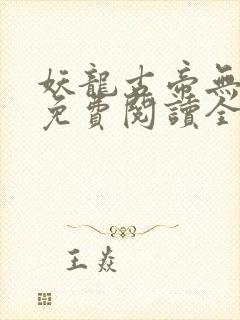 妖龍古帝無
免費閱讀全
王焱